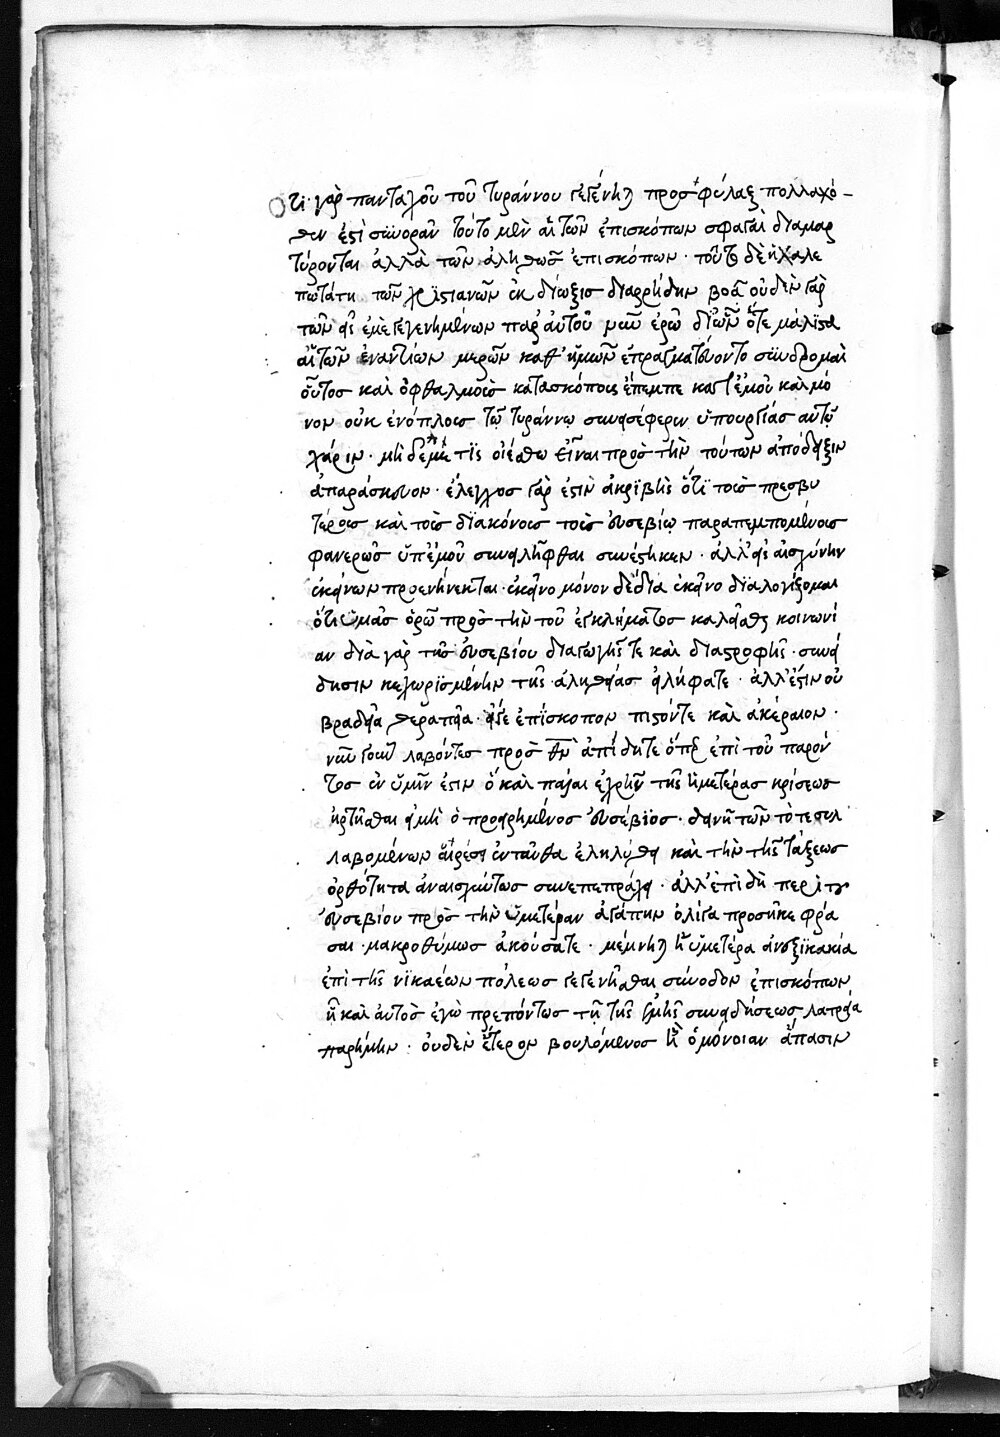 Ὅτι γὰρ πανταχοῦ τοῦ τυράννου γεγένηται προσφύλαξ πολλαχό-
θεν ἐστὶ συνορᾶν τοῦτο μὲν αἱ τῶν ἐπισκόπων σφαγαὶ διαμαρ
τύρονται ἀλλὰ τῶν ἀληθῶς ἐπισκόπων · τοῦτο δὲ ἡ χαλε
πωτάτη τῶν χριστιανῶν ἐκδίωξις διαρρήδην βοᾶ οὐδὲν γὰρ
τῶν εἰς ἐμὲ γεγενημένων παρ' αὐτοῦ νῦν ἐρῶ δι' ὧν ὅτε μάλιστα
αἱ τῶν ἐναντίων μερῶν καθ' ἡμῶν ἐπραγματεύοντο συνδρομαὶ
οὗτος καὶ ὀφθαλμοὺς κατασκόπους ἔπεμπε κατ' ἐμοῦ καὶ μό
νον οὐκ ἐνόπλους τῷ τυράννῳ συνεισέφερεν ὑπουργίας αὐτῷ
χάριν · μὴ δέ με τὶς οἰέσθω εἶναι πρὸς τὴν τούτων ἀπόδειξιν
ἀπαράσκευον · ἔλεγχος γὰρ ἐστὶν ἀκριβὴς ὅτι τοὺς πρεσβυ
τέρους καὶ τοὺς διακόνους τοὺς εὐσεβίῳ παραπεμπομένους
φανερῶς ὑπ' ἐμοῦ συνειλῆφθαι συνέστηκεν · ἀλλ' εἰς αἰσχύνην
ἐκείνων προενήνεκται · ἐκεῖνο μόνον δέδια ἐκεῖνο διαλογίζομαι
ὅτι ὑμᾶς ὁρῶ πρὸς τὴν τοῦ ἐγκλήματος καλεῖσθαι κοινωνί
αν διὰ γὰρ τῆς εὐσεβίου διαγωγῆς τε καὶ διαστροφῆς · συνεί
δησιν κεχωρισμένην τῆς ἀληθείας εἰλήφατε · ἀλλ' ἔστιν οὐ
βραδεῖα θεραπεία · εἴγε ἐπίσκοπον πιστόν τε καὶ ἀκέραιον ·
νῦν γοῦν λαβόντες πρὸς θν ἀπίδητε ὅπερ ἐπὶ τοῦ παρόν
τος ἐν ὑμῖν ἐστιν ὃ καὶ πάλαι ἐχρῆν τῆς ἡμετέρας κρίσεως
ἠρτῆσθαι εἰ μὴ ὁ προειρημένος εὐσέβιος · δεινῆ τῶν τότε συλ
λαβομένων αἱρέσει ἐνταῦθα ἐληλύθει καὶ τὴν τῆς τάξεως
ὀρθότητα ἀναισχύντως συνεπεπράχει · ἀλλ' ἐπὶ δὴ περὶ του
εὐσεβίου πρὸς τὴν ὑμετέραν ἀγάπην ὀλίγα προσῆκε φρά
σαι · μακροθύμως ἀκούσατε · μέμνηται ἡ ὑμετέρα ἀνεξικακία
ἐπὶ τῆς νικαέων πόλεως γεγενῆσθαι σύνοδον ἐπισκόπων
ᾗ καὶ αὐτὸς ἐγὼ πρεπόντως τῇ τῆς ἐμῆς συνειδήσεως λατρεία
παρήμην · οὐδὲν ἕτερον βουλόμενος ἢ ὁμόνοιαν ἅπασιν